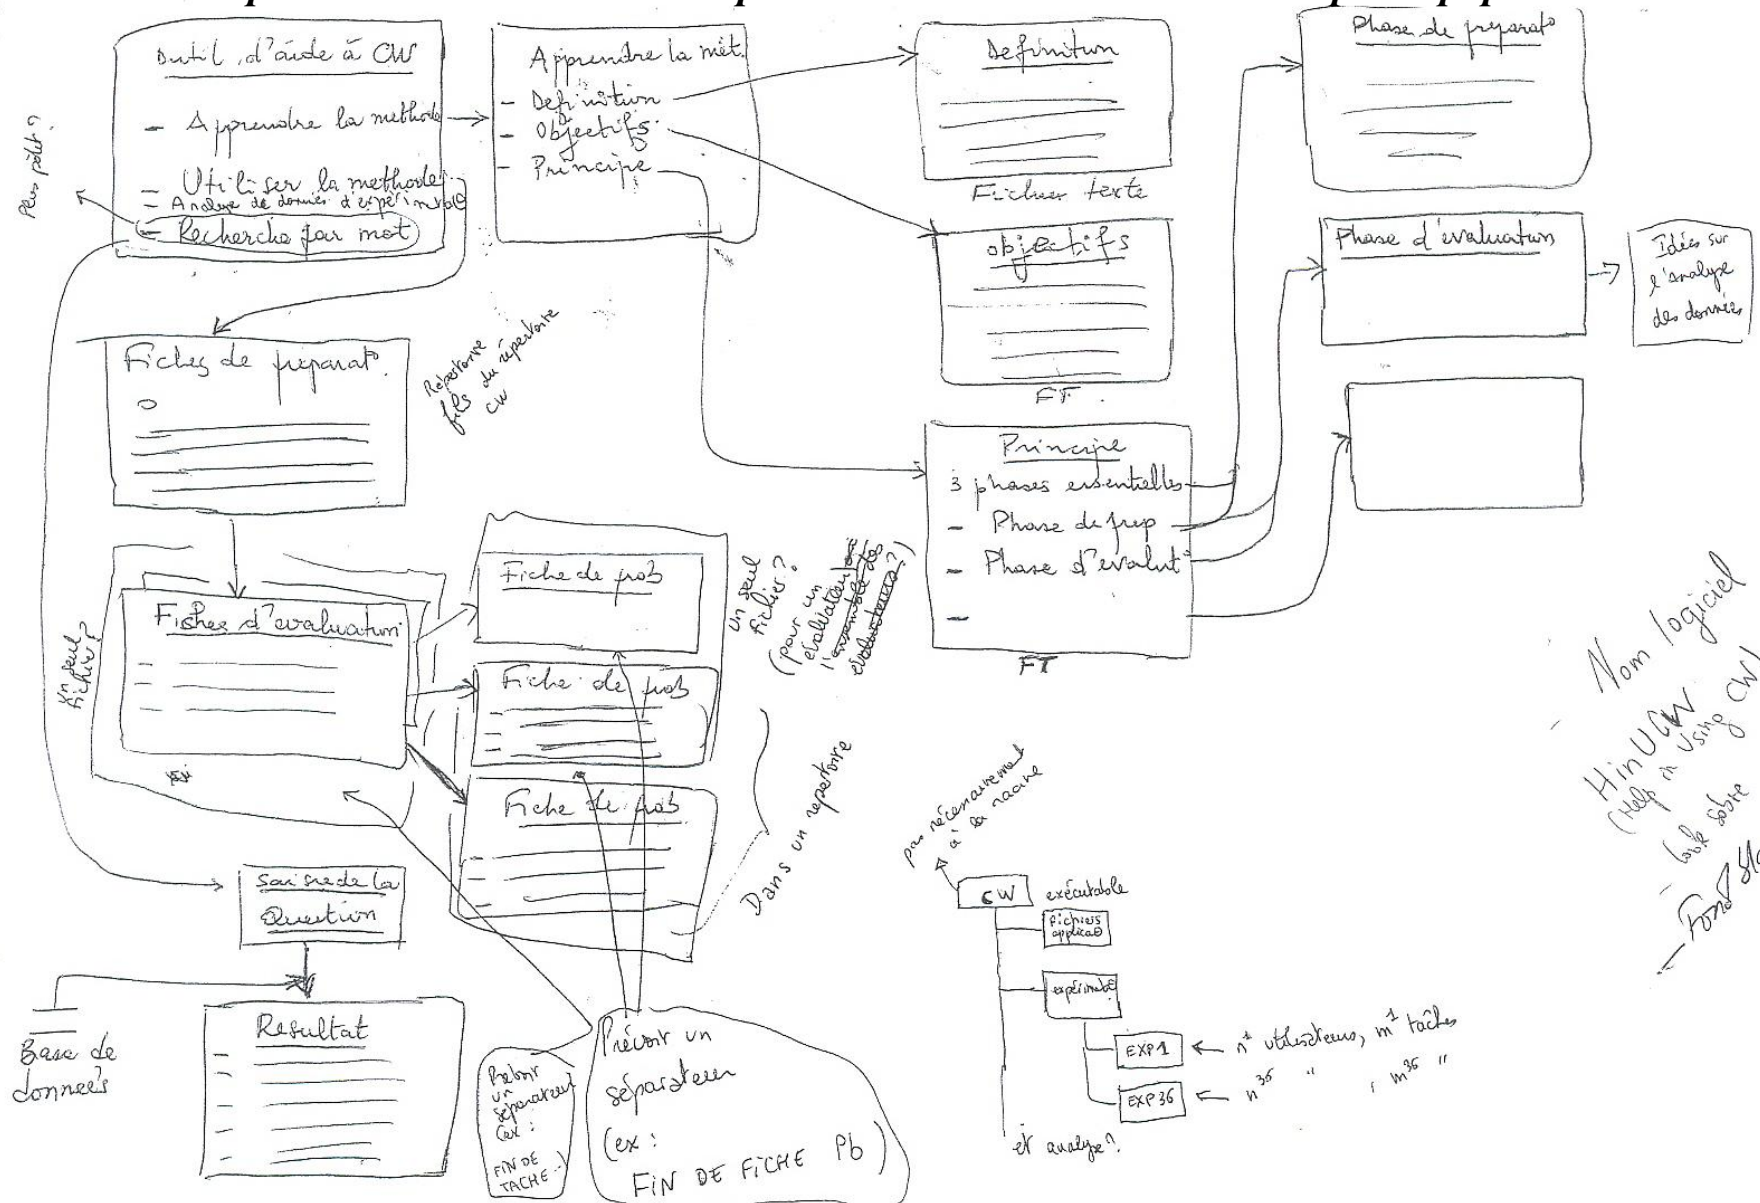 Outil d'aide à CW
- Apprendre la méthode
- Utiliser la méthode
- Analyse de données d'expérim
- Recherche par mot
Plus
Apprendre la mét.
- Definition
- Objectifs
- Principe
Definition
Fichier texte
Objectifs
FT.
Principe
3 phases essentielles
- Phase de prep
- Phase d'evaluat°
-
FT
Phase de préparat°
Phase d'évaluation
Idées sur
l'analyse
des données
Fiches de préparat°.
Répertoire
fils du répertoire
CW
Fiches d'evaluation
Un seul
fichier?
Fiche de prob
Fiche de prob
Fiche de prob
Un seul
fichier?
(pour un
évaluateur
l'ensemble des
évaluateurs?)
Dans un repertoire
Saisie de la
Question
Base de
données
Resultat
Prévoir
un
séparateur
(ex:
FIN DE
TACHE..)
Prévoir un
séparateur
(ex:
FIN DE FICHE Pb)
pas nécessairement
à la racine
CW exécutable
fichiers
applicat°
expérimt°
EXP1 ← n¹ utilisateurs, m¹ tâches
EXP36 ← n³⁶ " , m³⁶ "
et analyse?
- Nom logiciel
HinUCW
(Help in Using CW)
- look sobre
- Fond